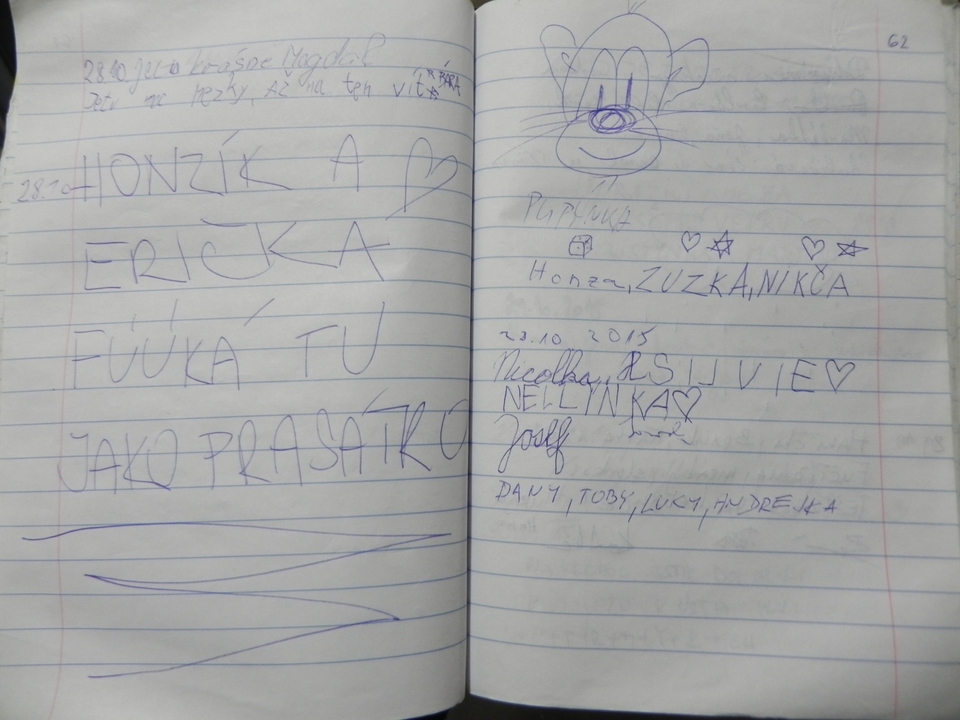 28.10. je to krásne Magda
Je tu hezky, Až na ten vítr BÁRA
28.10 HONZÍK A
ERIČKA
FÚÚKÁ TU
JAKO PRASÁTKO
62
Honza, ZUZKA, NIKČA
28.10 2015
Nicolka,
NELLINKA
Josef
DANY, TOBY, LUKY, ANDREJKA